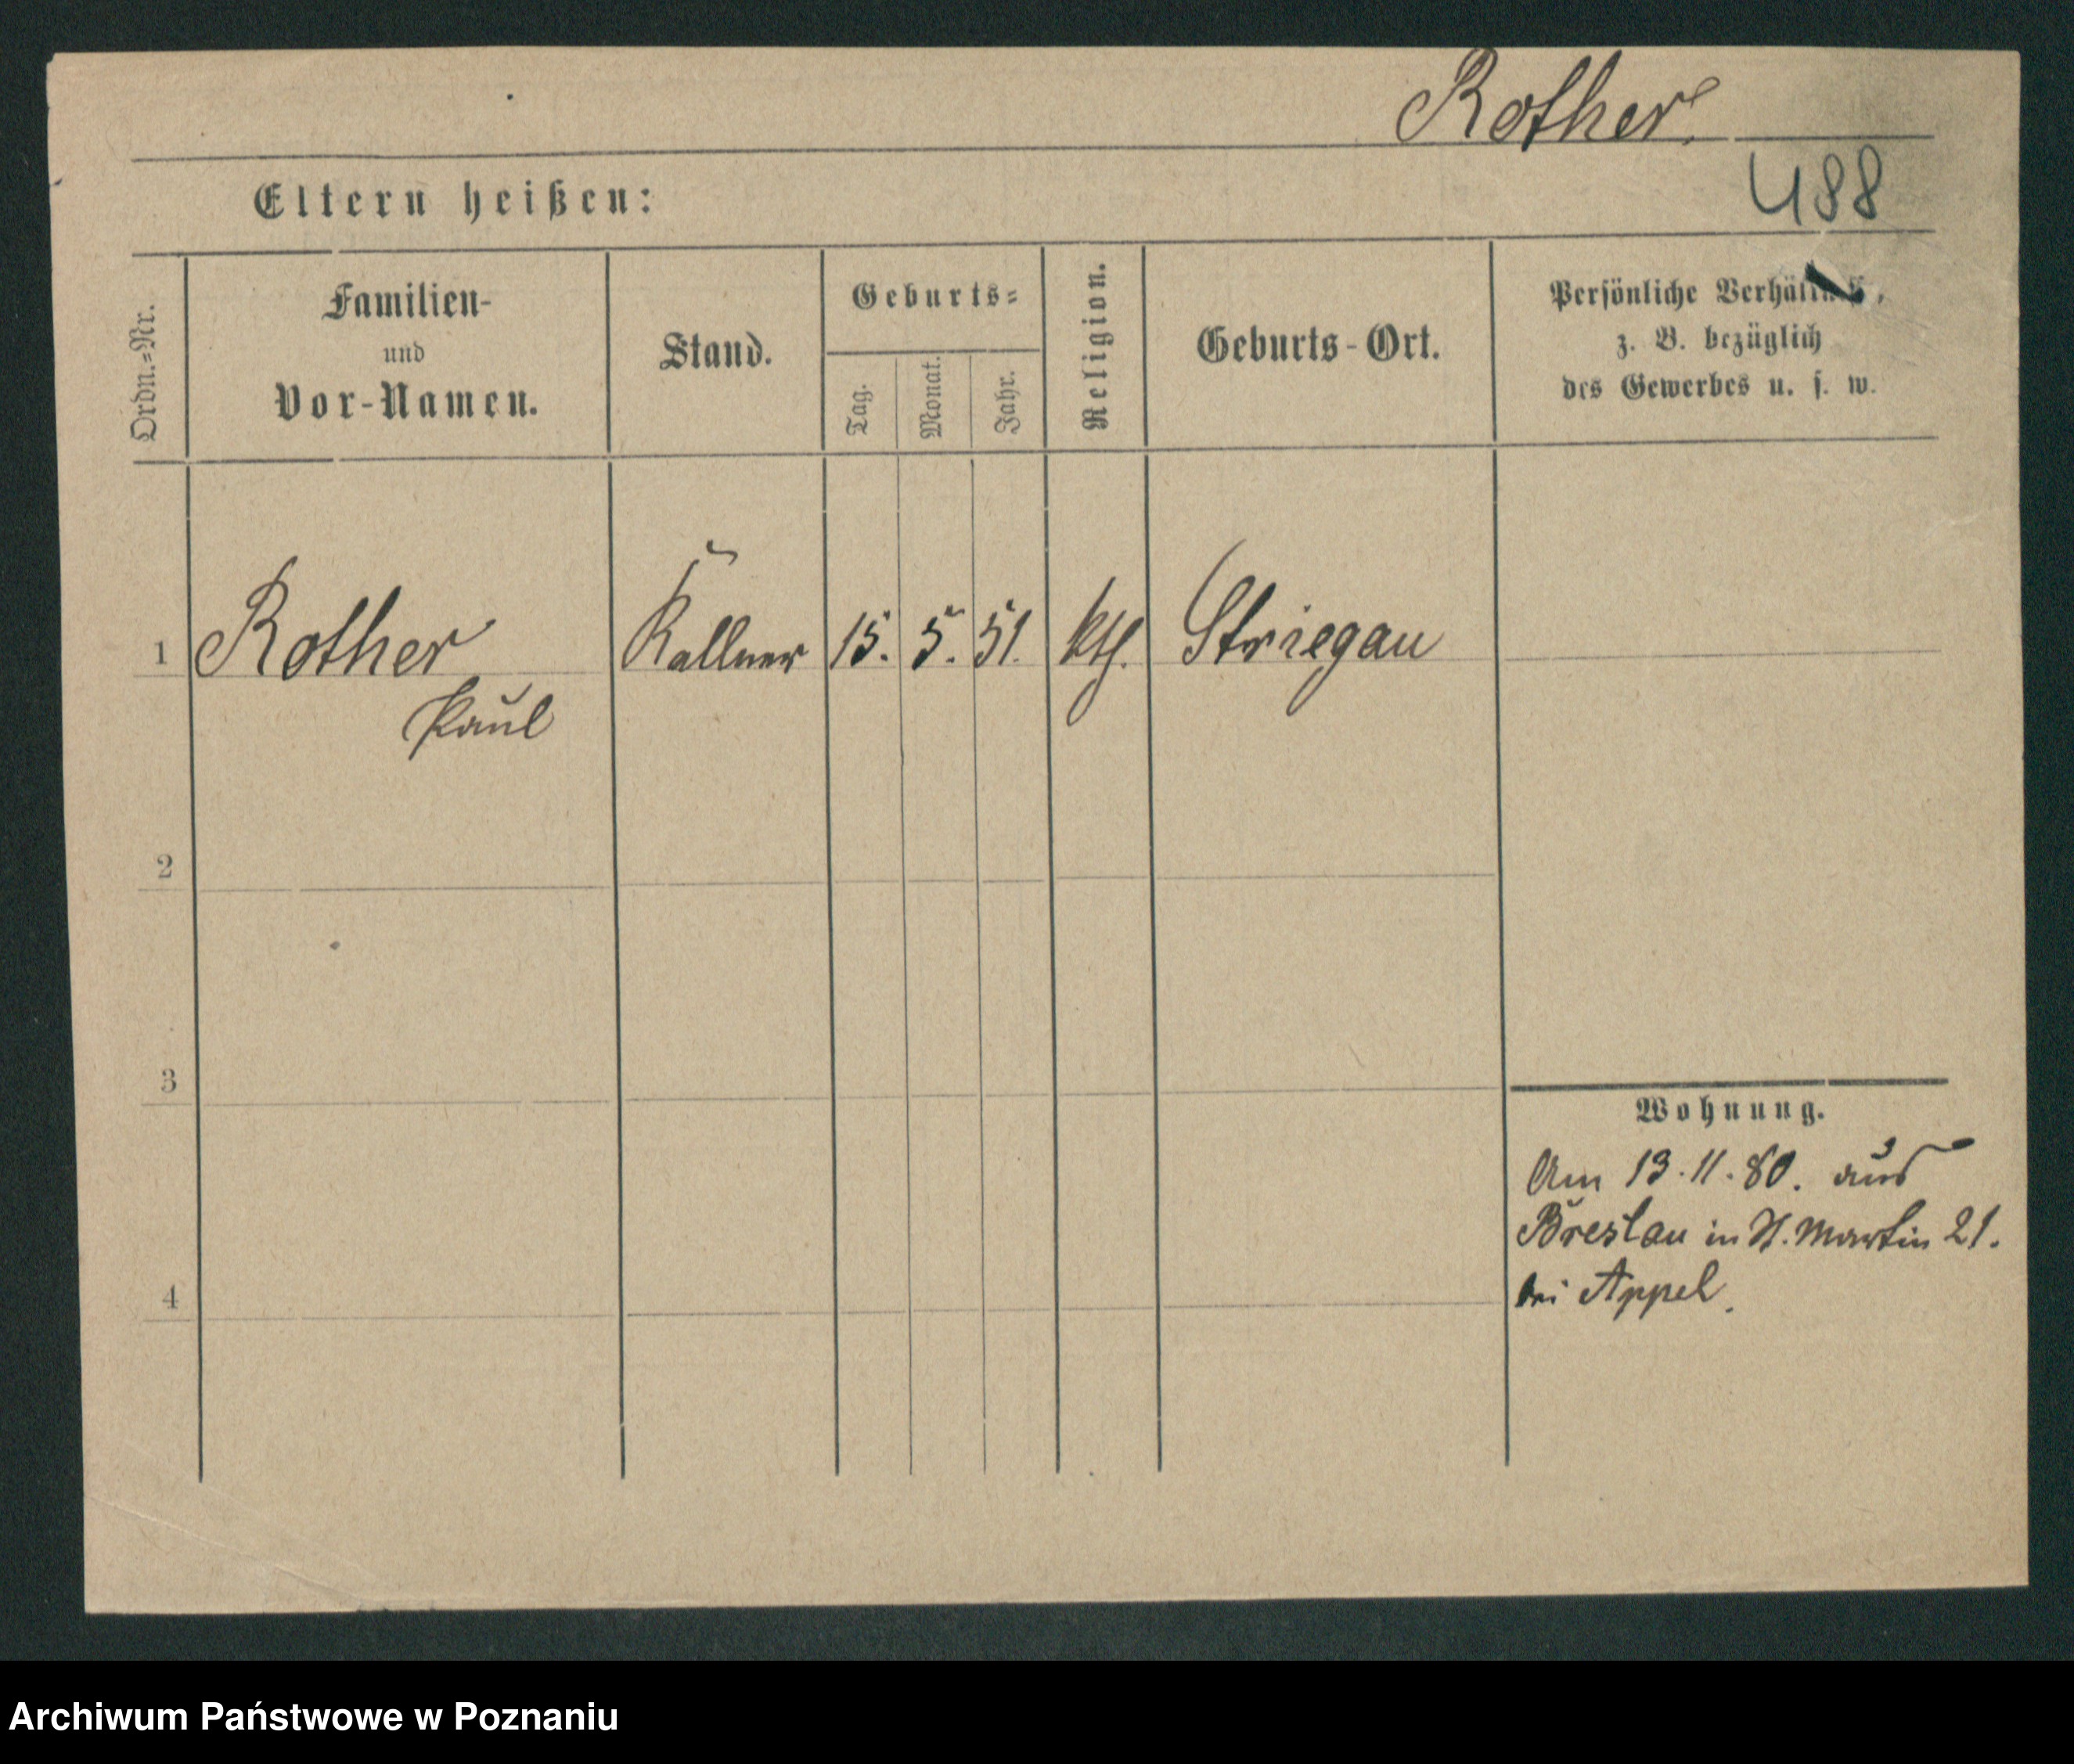 Rother.
488
Eltern heißen:
Ordn.=Nr.
Familien-
und
Vor-Namen.
Stand.
Geburts=
Tag.
Monat.
Jahr.
Religion.
Geburts-Ort.
Persönliche
z. B. bezüglich
des Gewerbes u. s. w.
1 Rother Kellner 15. 5. 51. kth. Striegau
Paul
2
3
Wohnung.
Am 13.11.80. aus
Breslau in St. Martin 21.
4
bei Appel.
Archiwum Państwowe w Poznaniu